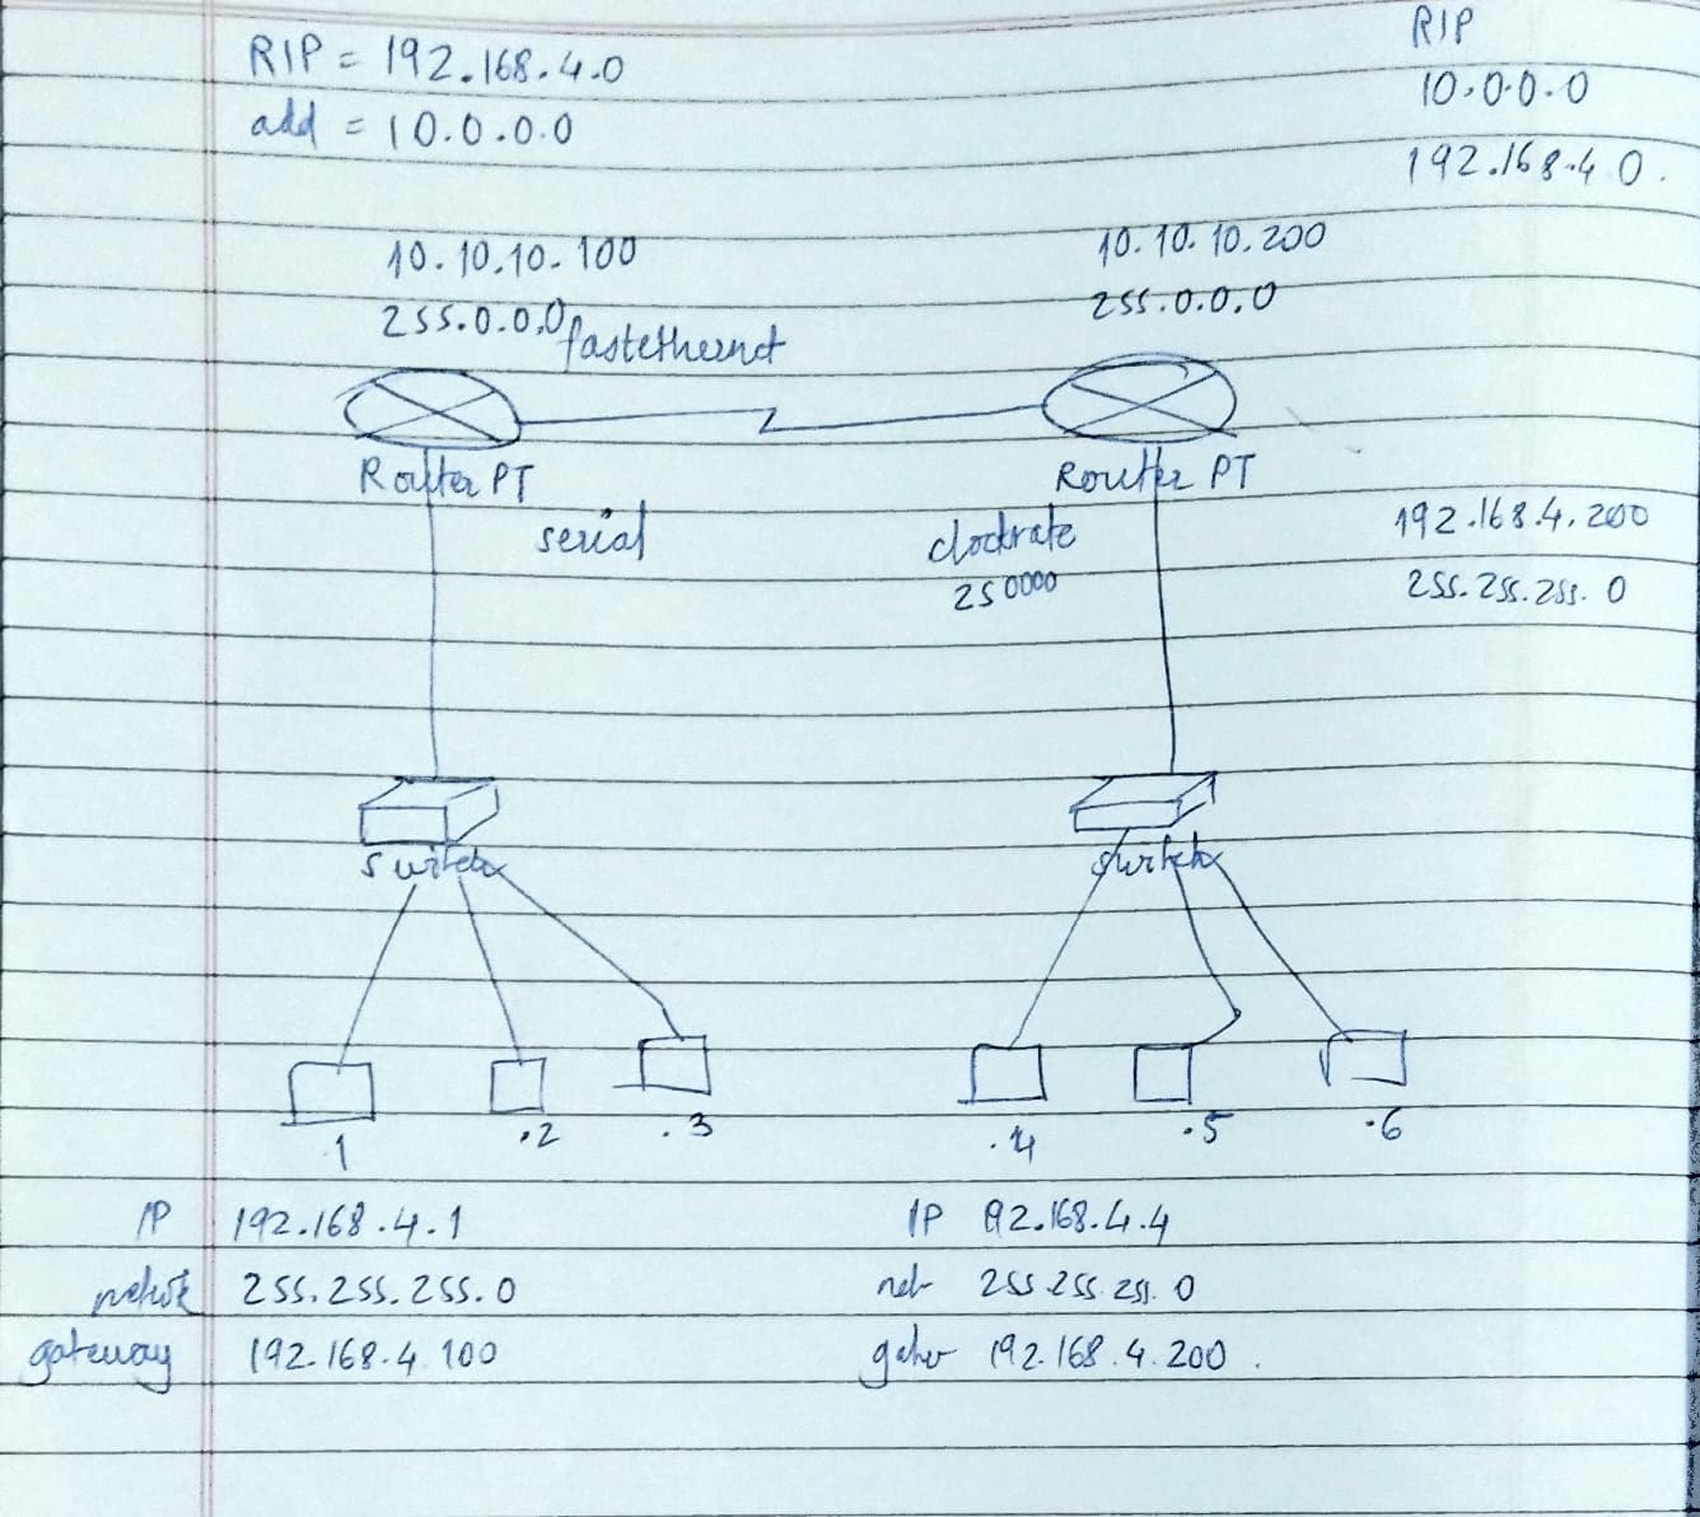 RIP = 192.168.4.0
add = 10.0.0.0
RIP
10.0.0.0
192.168.4 0.
10.10.10.100
255.0.0.0
fastethernet
10.10.10.200
255.0.0.0
Router PT
serial
Router PT
clockrate
250000
192.168.4.200
255.255.255.0
switch
switch
.1 .2 .3
.4 .5 .6
IP 192.168.4.1
255.255.255.0
gateway 192.168.4 100
IP 192.168.4.4
net 255.255.255.0
192.168.4.200.